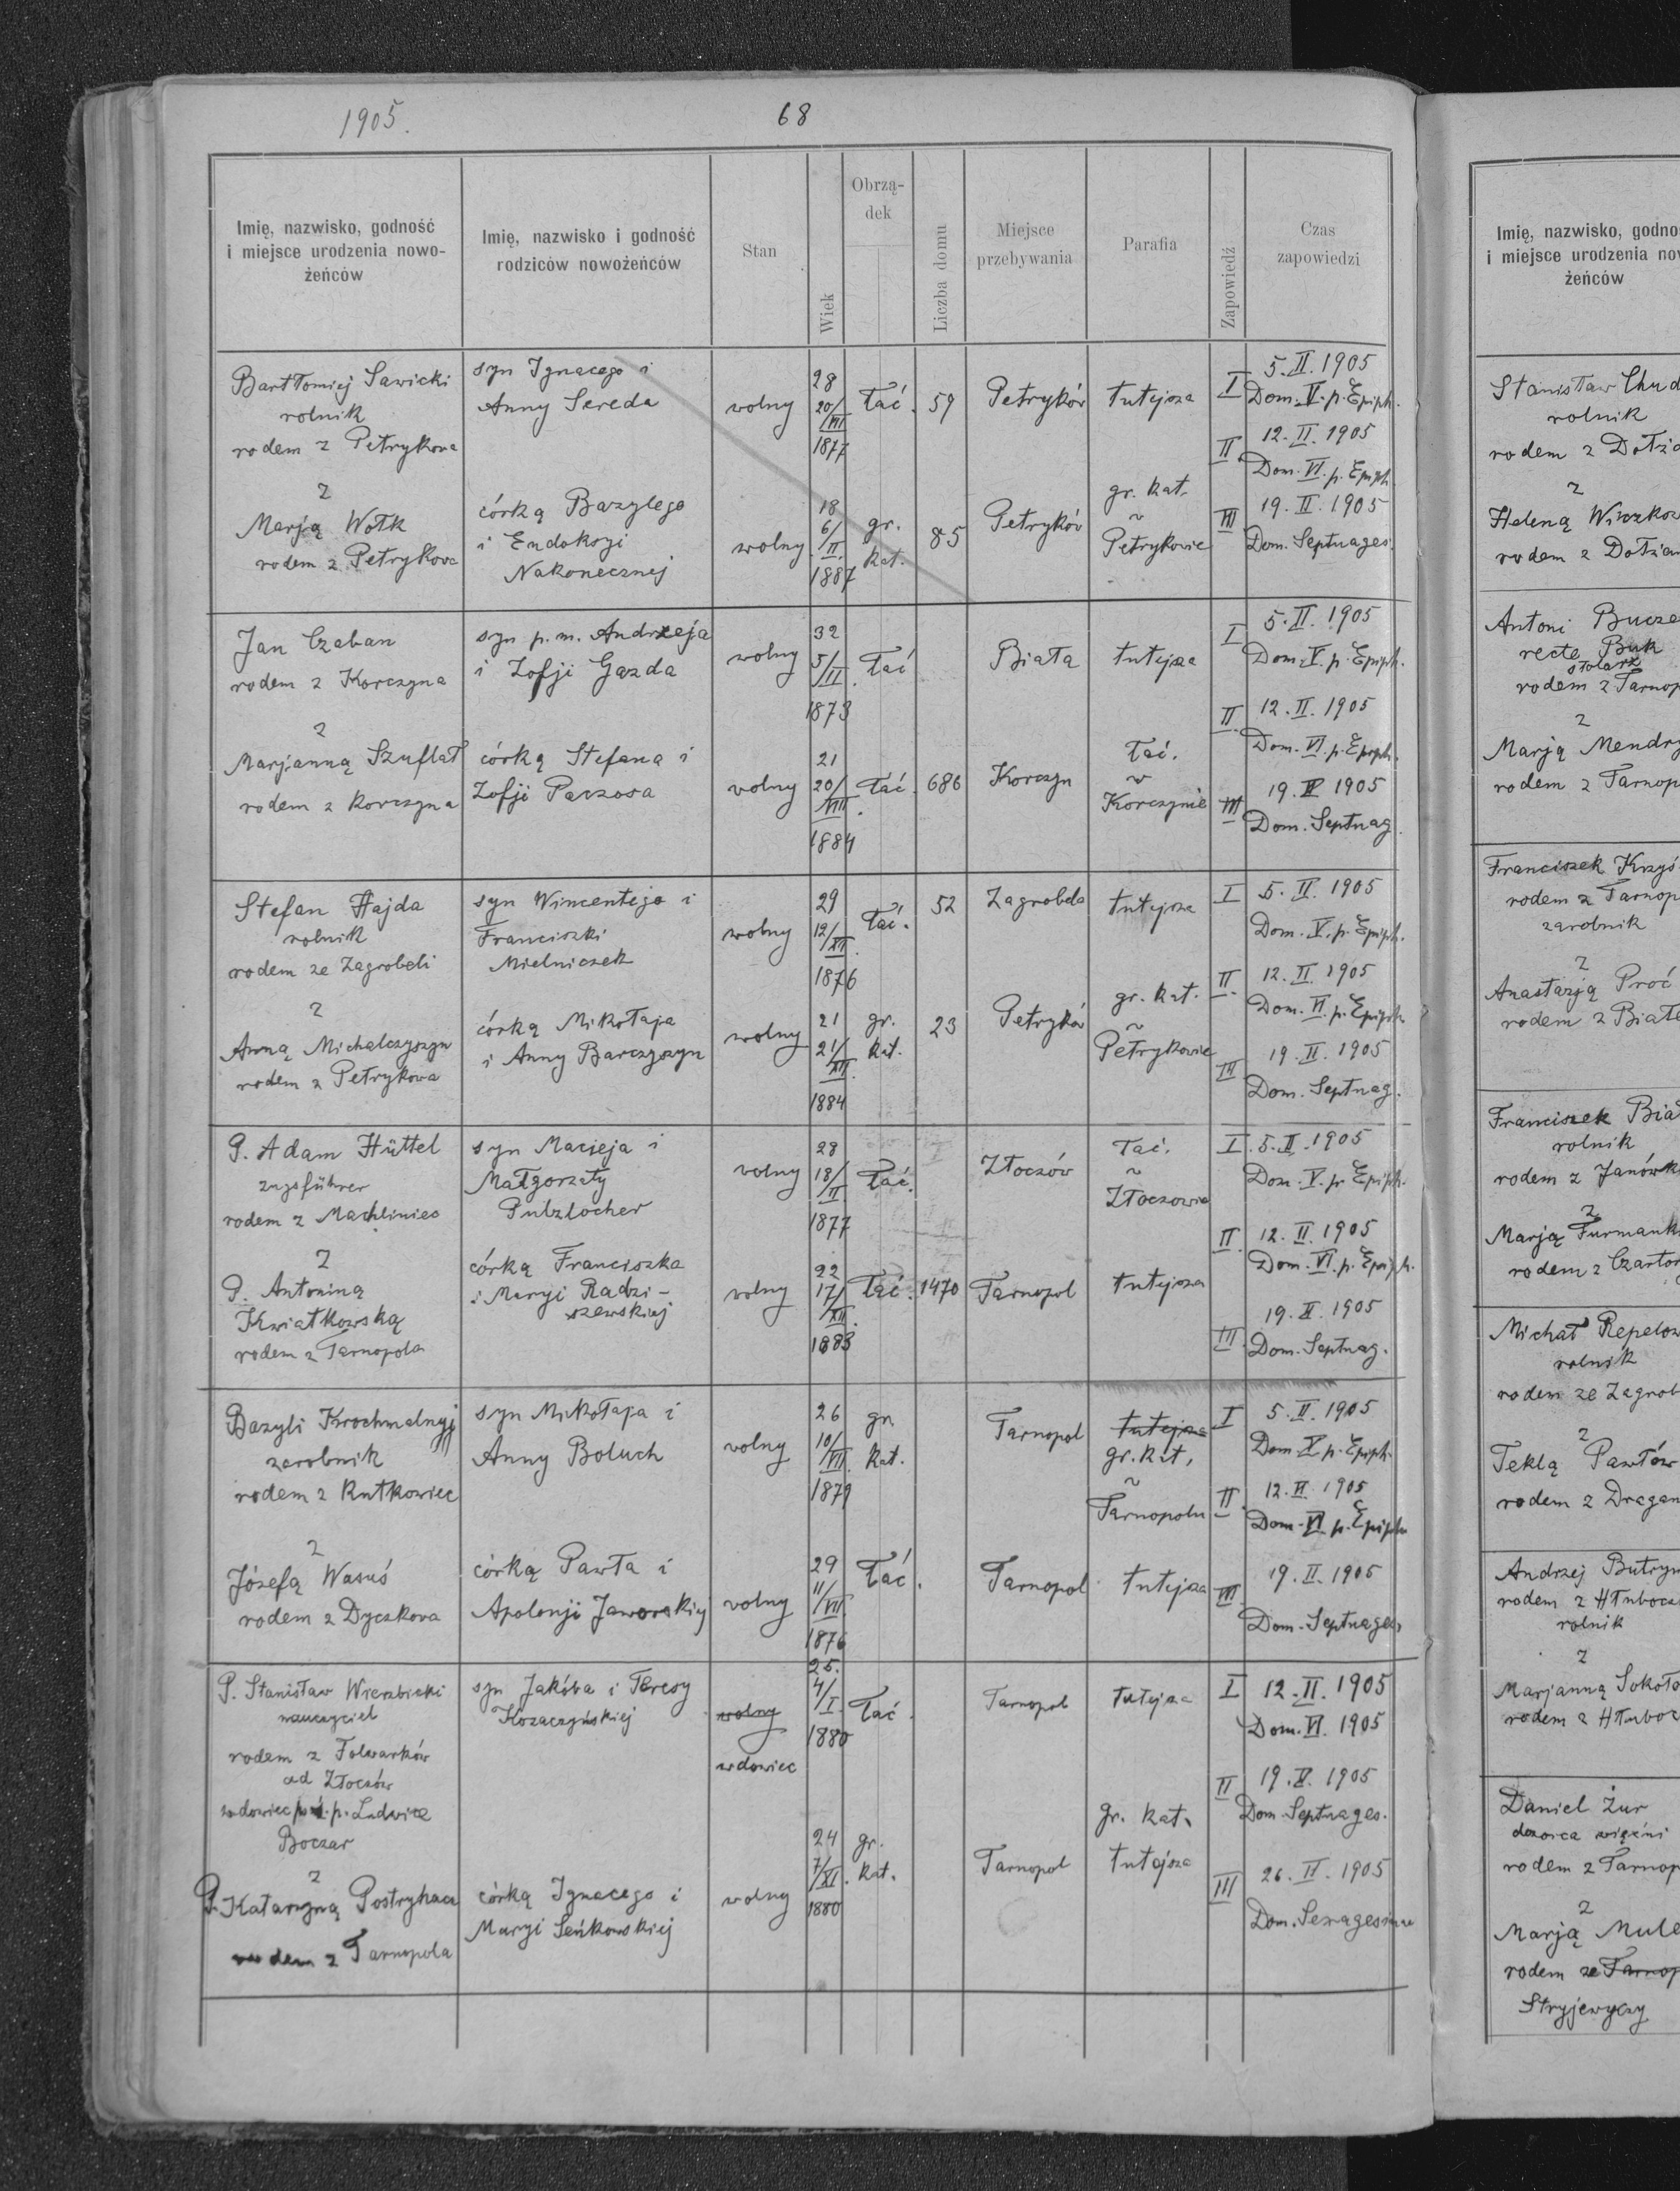 1905.
68
Imię, nazwisko, godność
i miejsce urodzenia nowo-
żeńców
Imię, nazwisko i godność
rodziców nowożeńców
Stan
Wiek
Obrzą-
dek
Liczba domu
Miejsce
przebywania
Parafia
Zapowiedź
Czas
zapowiedzi
Bartłomiej Sawicki
rolnik
rodem z Petrykowa
z
Marją Wołk
rodem z Petrykowa
syn Ignacego i
Anny Sereda
córką Bazylego
i Eudoksyi
Nakonecznej
wolny
wolny
28
20/VIII
1877
18
6/II.
1887
łać.
gr.
kat.
59
85
Petryków
Petryków
tutejsza
gr. kat.
w
Petrykowie
I
5. II. 1905
Dom. V. p. Epiph.
II.
12. II. 1905
Dom. VI. p. Epiph.
III
19. II. 1905
Dom. Septuages.
Jan Czaban
rodem z Korczyna
z
Marjanną Szuflat
rodem z Korczyna
syn p. m. Andrzeja
i Zofji Gazda
córką Stefana i
Zofji Parzosa
wolny
wolny
32
5/III.
1873
21
20/VIII.
1884
łać
łać.
686
Biała
Korczyn
tutejsza
łać.
w
Korczynie
I
5. II. 1905
Dom. V. p. Epiph.
II.
12. II. 1905
Dom. VI. p. Epiph.
III
19. II 1905
Dom. Septuag.
Stefan Hajda
rolnik
rodem ze Zagrobeli
z
Anną Michalczyszyn
rodem z Petrykowa
syn Wincentego i
Franciszki
Mielniczek
córką Mikołaja
i Anny Barczyszyn
wolny
wolny
29
12/XII.
1876
21
21/XII.
1884
łać.
gr.
kat.
52
23
Zagrobela
Petryków
tutejsza
gr. kat.
w
Petrykowie
I
5. II. 1905
Dom. V. p. Epiph.
II.
12. II. 1905
Dom. VI. p. Epiph.
III
19. II. 1905
Dom. Septuag.
P. Adam Hüttel
zugsführer
rodem z Machliniec
z
P. Antoniną
Kwiatkowską
rodem z Tarnopola
syn Macieja i
Małgorzaty
Putzlocher
córką Franciszka
i Maryi Radzi-
szewskiej
wolny
wolny
28
18/II.
1877
22
17/XII.
1883
łać.
łać.
1470
Złoczów
Tarnopol
łać.
w
Złoczowie
tutejsza
I.
5. II. 1905
Dom. V. p. Epiph.
II.
12. II. 1905
Dom. VI. p. Epiph.
III.
19. II. 1905
Dom. Septuag.
Bazyli Krochmalnyj
zarobnik
rodem z Rutkowiec
z
Józefą Wasuś
rodem z Dyczkowa
syn Mikołaja i
Anny Boluch
córką Pawła i
Apolonji Jaworskiej
wolny
wolny
26
10/VII.
1879
29
11/VII.
1876
gr.
kat.
łać.
Tarnopol
Tarnopol
tutejsza
gr. kat.
w
Tarnopolu
tutejsza
I
5. II. 1905
Dom. V. p. Epiph.
II.
12. II. 1905
Dom. VI. p. Epiph.
III.
19. II. 1905
Dom. Septuages.
P. Stanisław Wierzbicki
nauczyciel
rodem z Folwarków
ad Złoczów
wdowiec po ś. p. Ludwice
Boczar
z
P. Katarzyną Postryhacz
rodem z Tarnopola
syn Jakóba i Teresy
Kozaczyńskiej
córką Ignacego i
Maryi Seńkowskiej
wolny
wdowiec
wolny
25.
4/I.
1880
24
7/XI.
1880
łać.
gr.
kat.
Tarnopol
Tarnopol
tutejsza
gr. kat.
tutejsza
I
12. II. 1905
Dom. VI. 1905
II
19. II. 1905
Dom. Septuages.
III
26. II. 1905
Dom. Sexagesimae
Imię, nazwisko, godno
i miejsce urodzenia no
żeńców
Stanisław Chud
rolnik
rodem z Dołża
z
Heleną Wiczkow
rodem z Dołżan
Antoni Bucze
recte Buk
stolarz
rodem z Tarnop
z
Marją Mendry
rodem z Tarnop
Franciszek Krzyś
rodem z Tarnop
zarobnik
z
Anastazją Proć
rodem z Białe
Franciszek Biał
rolnik
rodem z Janówk
z
Marją Furmank
rodem z Czartor
Michał Repelow
rolnik
rodem ze Zagrob
z
Teklą Pawłów
rodem z Dragan
Andrzej Butryn
rodem z Hłubocz
rolnik
z
Marjanną Sokoło
rodem z Hłuboc
Daniel Żur
dozorca więźni
rodem z Tarnop
z
Marją Mule
rodem ze Tarnop
Stryjewyczy